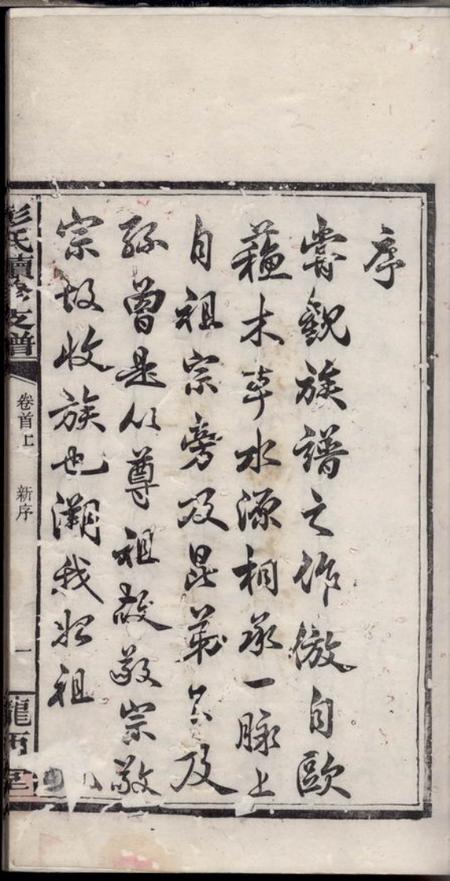 序
嘗觀族譜之作倣自歐
蘓木本水源相承一脉上
自祖宗旁及昆弟下及
孫曾是以尊祖故敬宗敬
宗故收族也溯我始祖
彭氏續修支譜
卷首上
新序
一